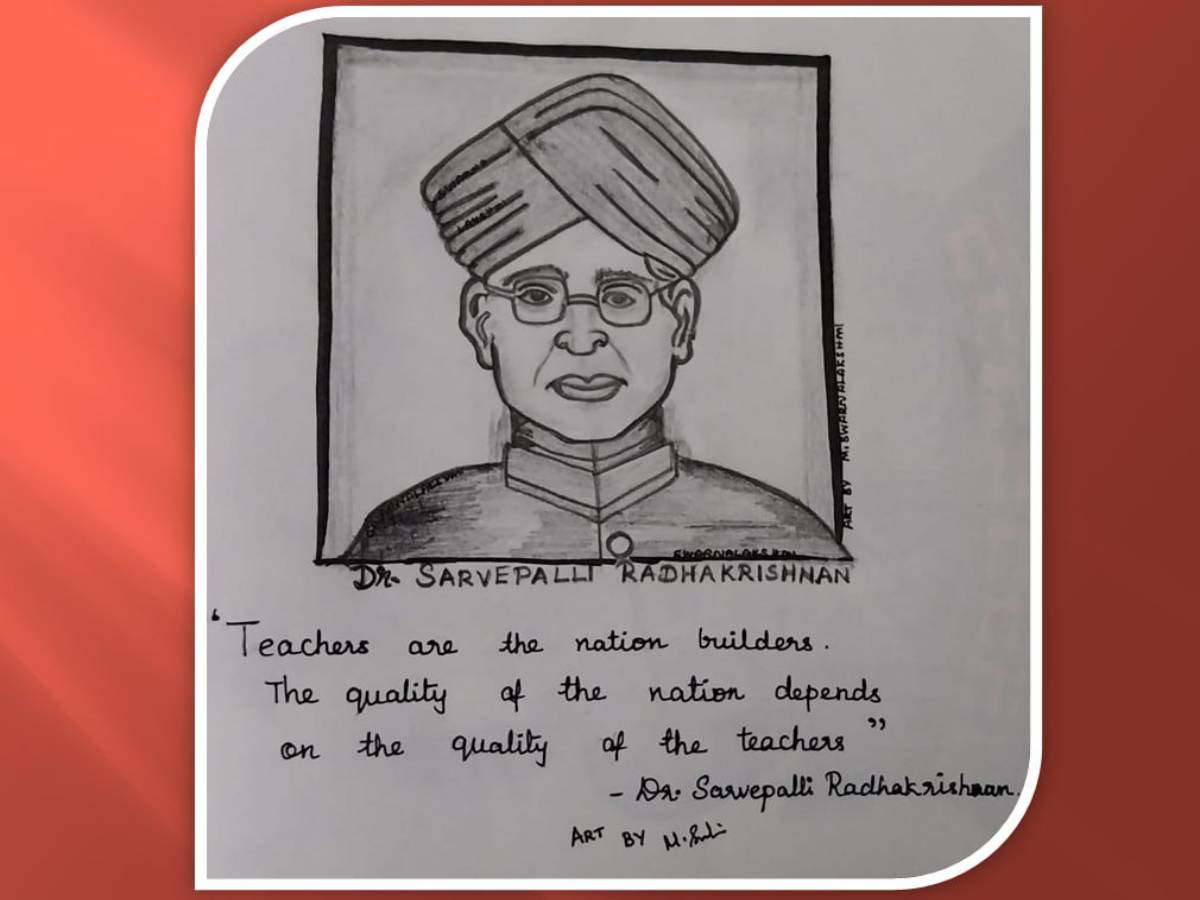 SWARNA
LAKSHMI
SWARNALAKSHMI
SWARNALAKSHMI
ART BY M. SWARNALAKSHMI
Dr. SARVEPALLI RADHAKRISHNAN
‘Teachers are the nation builders.
The quality of the nation depends
on the quality of the teachers”
- Dr. Sarvepalli Radhakrishnan.
ART BY M.